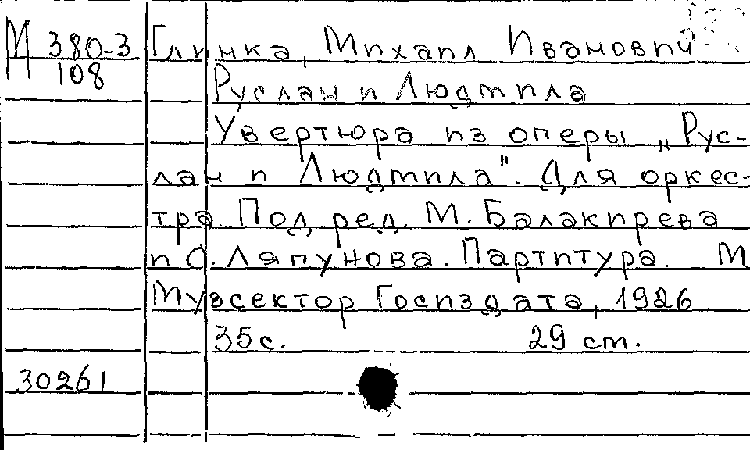 М 380-3
108
Глинка, Михаил Иванович
Руслан и Людмила
Увертюра из оперы „Рус-
лан и Людмила". Для оркес-
тра. Под ред. М. Балакирева
и С. Ляпунова. Партитура. М
Музсектор Госиздата, 1926
35 с. 29 см.
30261